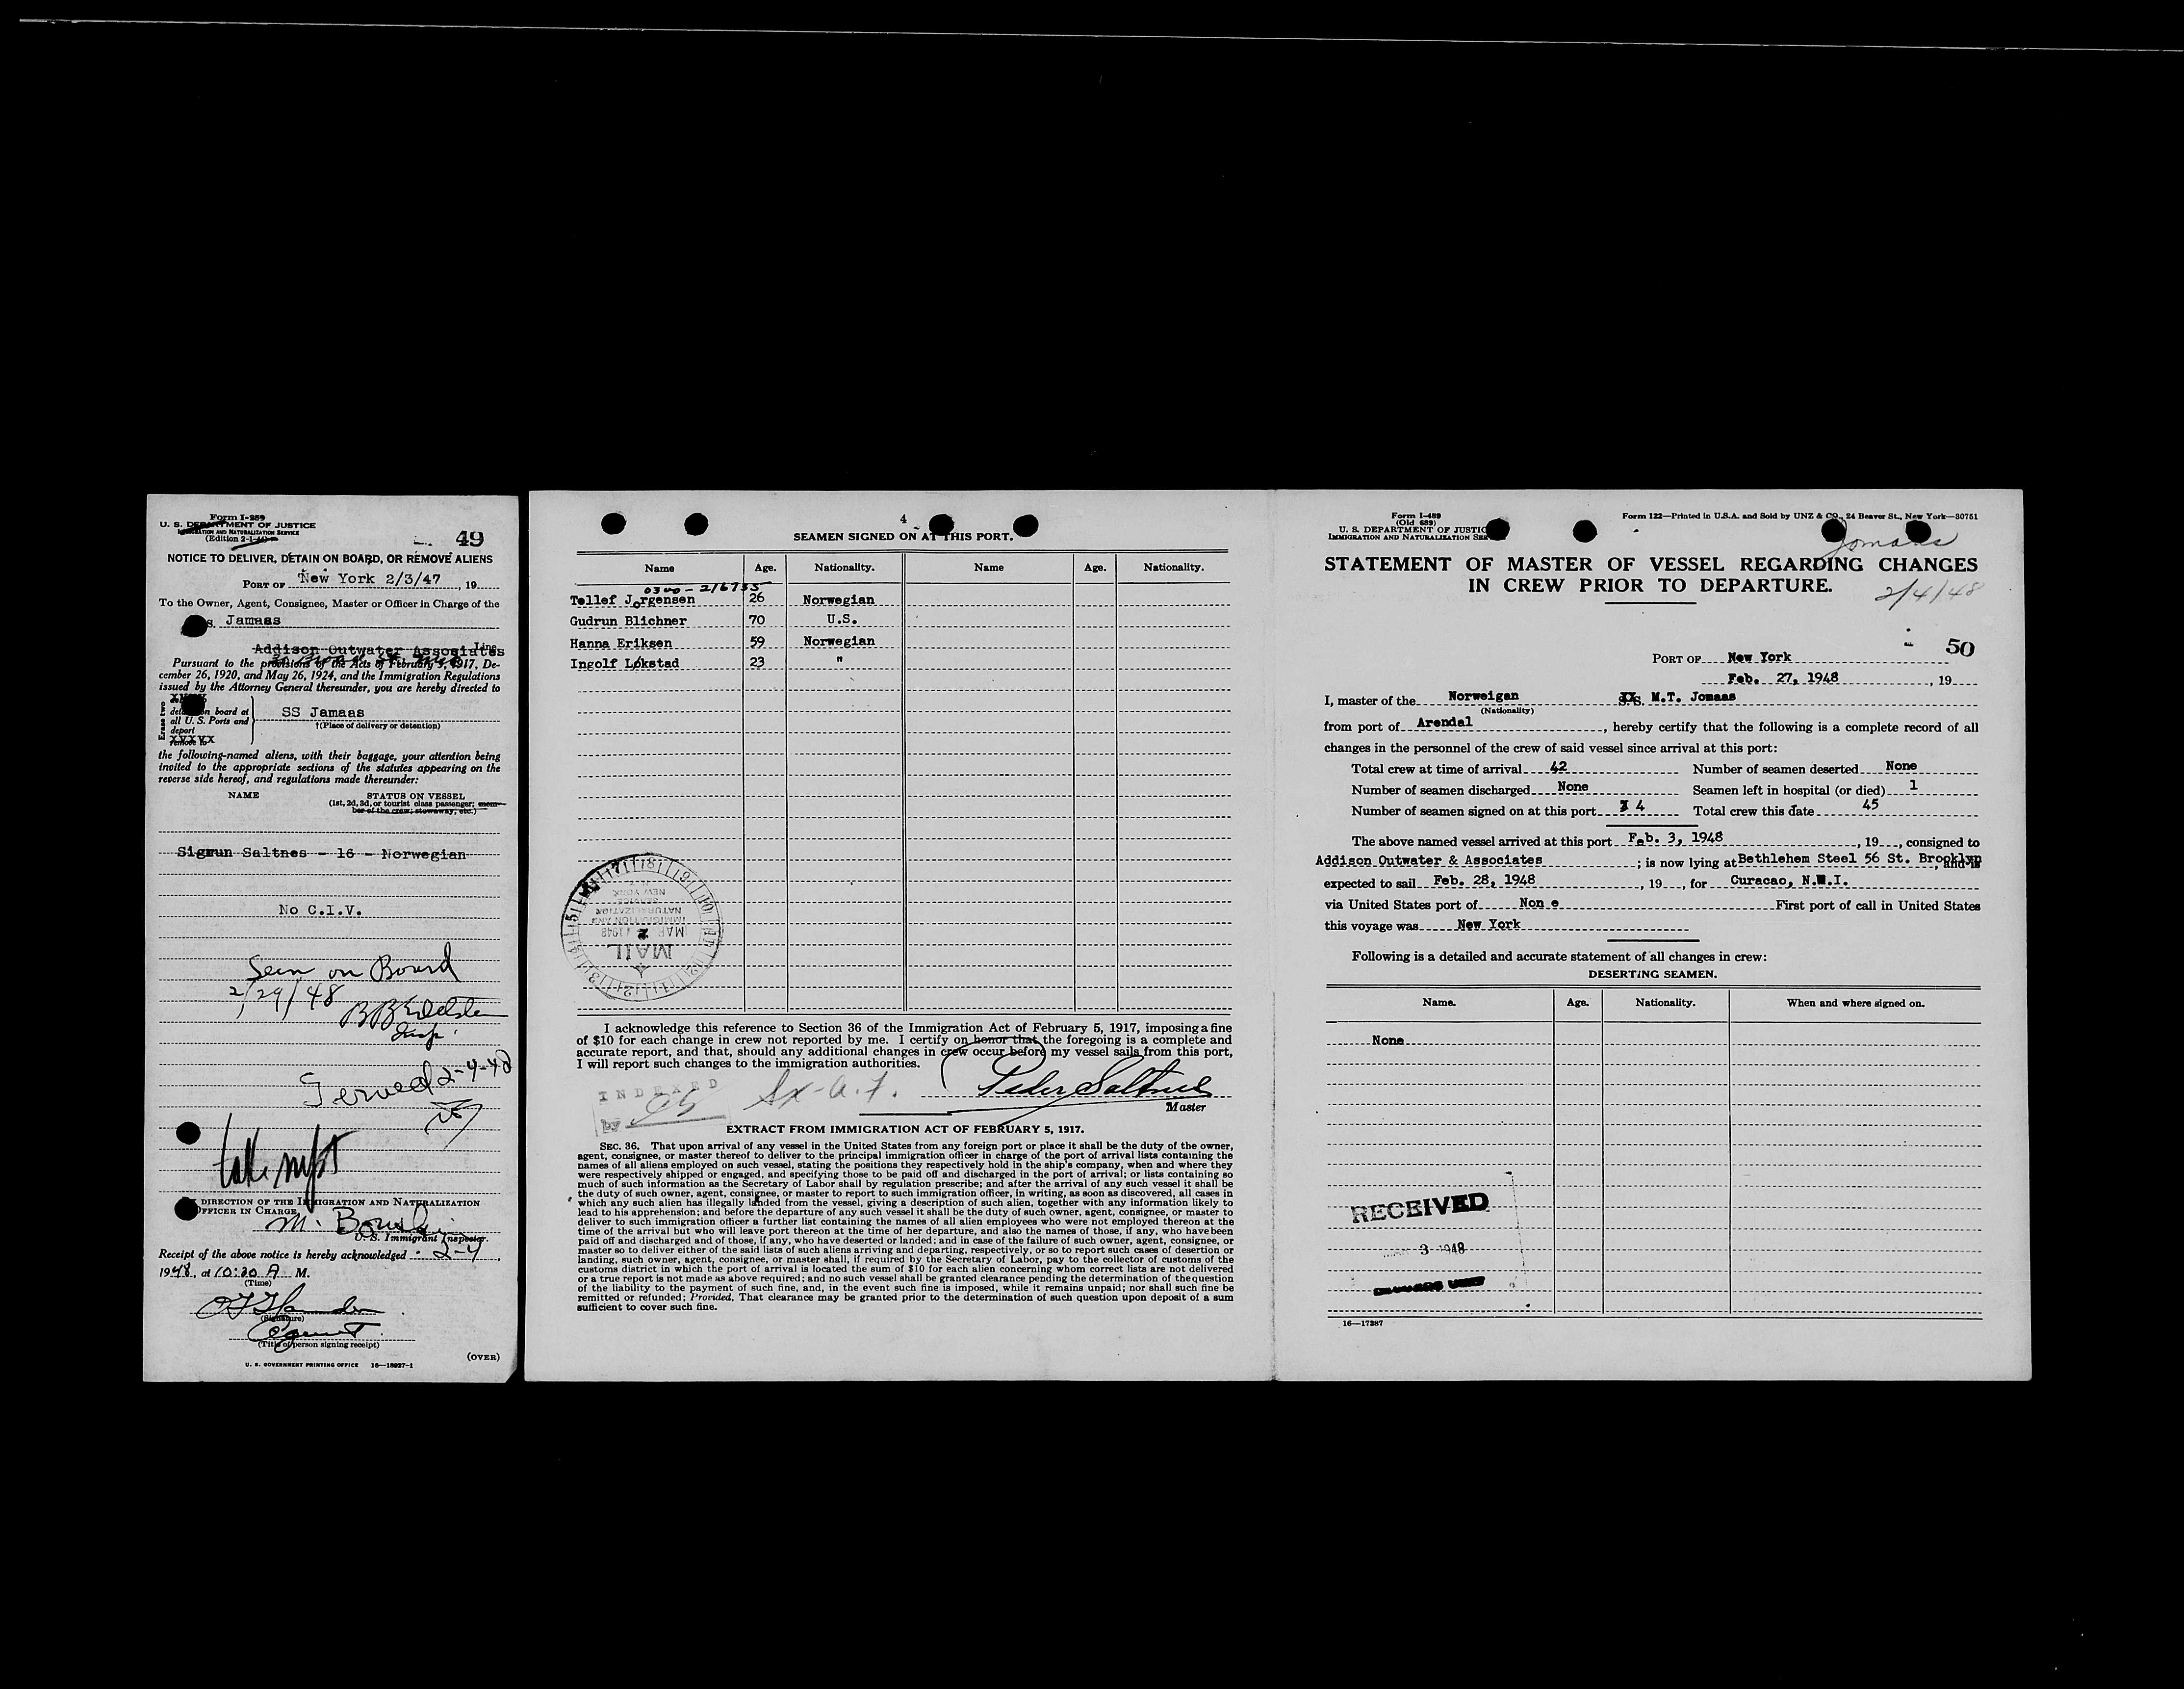 Form I-259
U. S. DEPARTMENT OF JUSTICE
IMMIGRATION AND NATURALIZATION SERVICE
(Edition 2-1-40)
49
NOTICE TO DELIVER, DETAIN ON BOARD, OR REMOVE ALIENS
PORT OF New York 2/3/47, 19
To the Owner, Agent, Consignee, Master or Officer in Charge of the
S. Jamaas
Addison Outwater Associates Line
Pursuant to the provisions of the Acts of February 5, 1917, De-
cember 26, 1920, and May 26, 1924, and the Immigration Regulations
issued by the Attorney General thereunder, you are hereby directed to
Erase two
detain on board at
all U. S. Ports and
deport
remove to
SS Jamaas
†(Place of delivery or detention)
the following-named aliens, with their baggage, your attention being
invited to the appropriate sections of the statutes appearing on the
reverse side hereof, and regulations made thereunder:
NAME STATUS ON VESSEL
(1st, 2d, 3d, or tourist class passenger; mem-
ber of the crew; stowaway, etc.)
Sigrun Saltnes - 16 - Norwegian
No C.I.V.
Seen on Board
2/29/48
Insp.
Served 2-4-48
DIRECTION OF THE IMMIGRATION AND NATURALIZATION
OFFICER IN CHARGE
M.
U. S. Immigrant Inspector.
Receipt of the above notice is hereby acknowledged 2-4
1948, at 10:30 A M.
(Time)
(Signature)
Agent
(Title of person signing receipt)
(OVER)
U. S. GOVERNMENT PRINTING OFFICE 16—18927-1
4
SEAMEN SIGNED ON AT THIS PORT.
Name Age. Nationality. Name Age. Nationality.
0300 - 2/6735
Tellef Jorgensen 26 Norwegian
Gudrun Blichner 70 U.S.
Hanna Eriksen 59 Norwegian
Ingolf Lokstad 23 "
MAIL
MAR 2 1948
IMMIGRATION AND
NATURALIZATION
SERVICE
NEW YORK
I acknowledge this reference to Section 36 of the Immigration Act of February 5, 1917, imposing a fine
of $10 for each change in crew not reported by me. I certify on honor that the foregoing is a complete and
accurate report, and that, should any additional changes in crew occur before my vessel sails from this port,
I will report such changes to the immigration authorities.
INDEXED
by
Peder Saltnes
Master
EXTRACT FROM IMMIGRATION ACT OF FEBRUARY 5, 1917.
SEC. 36. That upon arrival of any vessel in the United States from any foreign port or place it shall be the duty of the owner,
agent, consignee, or master thereof to deliver to the principal immigration officer in charge of the port of arrival lists containing the
names of all aliens employed on such vessel, stating the positions they respectively hold in the ship's company, when and where they
were respectively shipped or engaged, and specifying those to be paid off and discharged in the port of arrival; or lists containing so
much of such information as the Secretary of Labor shall by regulation prescribe; and after the arrival of any such vessel it shall be
the duty of such owner, agent, consignee, or master to report to such immigration officer, in writing, as soon as discovered, all cases in
which any such alien has illegally landed from the vessel, giving a description of such alien, together with any information likely to
lead to his apprehension; and before the departure of any such vessel it shall be the duty of such owner, agent, consignee, or master to
deliver to such immigration officer a further list containing the names of all alien employees who were not employed thereon at the
time of the arrival but who will leave port thereon at the time of her departure, and also the names of those, if any, who have been
paid off and discharged and of those, if any, who have deserted or landed; and in case of the failure of such owner, agent, consignee, or
master so to deliver either of the said lists of such aliens arriving and departing, respectively, or so to report such cases of desertion or
landing, such owner, agent, consignee, or master shall, if required by the Secretary of Labor, pay to the collector of customs of the
customs district in which the port of arrival is located the sum of $10 for each alien concerning whom correct lists are not delivered
or a true report is not made as above required; and no such vessel shall be granted clearance pending the determination of the question
of the liability to the payment of such fine, and, in the event such fine is imposed, while it remains unpaid; nor shall such fine be
remitted or refunded; Provided, That clearance may be granted prior to the determination of such question upon deposit of a sum
sufficient to cover such fine.
Form I-489
(Old 689)
U. S. DEPARTMENT OF JUSTICE
IMMIGRATION AND NATURALIZATION SER
Form 122—Printed in U.S.A. and Sold by UNZ & CO., 24 Beaver St., New York—30751
Jomaas
STATEMENT OF MASTER OF VESSEL REGARDING CHANGES
IN CREW PRIOR TO DEPARTURE.
2/4/48
50
PORT OF New York
Feb. 27, 1948, 19
I, master of the Norweigan S.S. M.T. Jomaas
(Nationality)
from port of Arendal, hereby certify that the following is a complete record of all
changes in the personnel of the crew of said vessel since arrival at this port:
Total crew at time of arrival 42 Number of seamen deserted None
Number of seamen discharged None Seamen left in hospital (or died) 1
Number of seamen signed on at this port 4 Total crew this date 45
The above named vessel arrived at this port Feb. 3, 1948, 19, consigned to
Addison Outwater & Associates; is now lying at Bethlehem Steel 56 St. Brooklyn, and is
expected to sail Feb. 28, 1948, 19, for Curacao, N.W.I.
via United States port of Non e First port of call in United States
this voyage was New York
Following is a detailed and accurate statement of all changes in crew:
DESERTING SEAMEN.
Name. Age. Nationality. When and where signed on.
None
RECEIVED
3 1948
16—17387